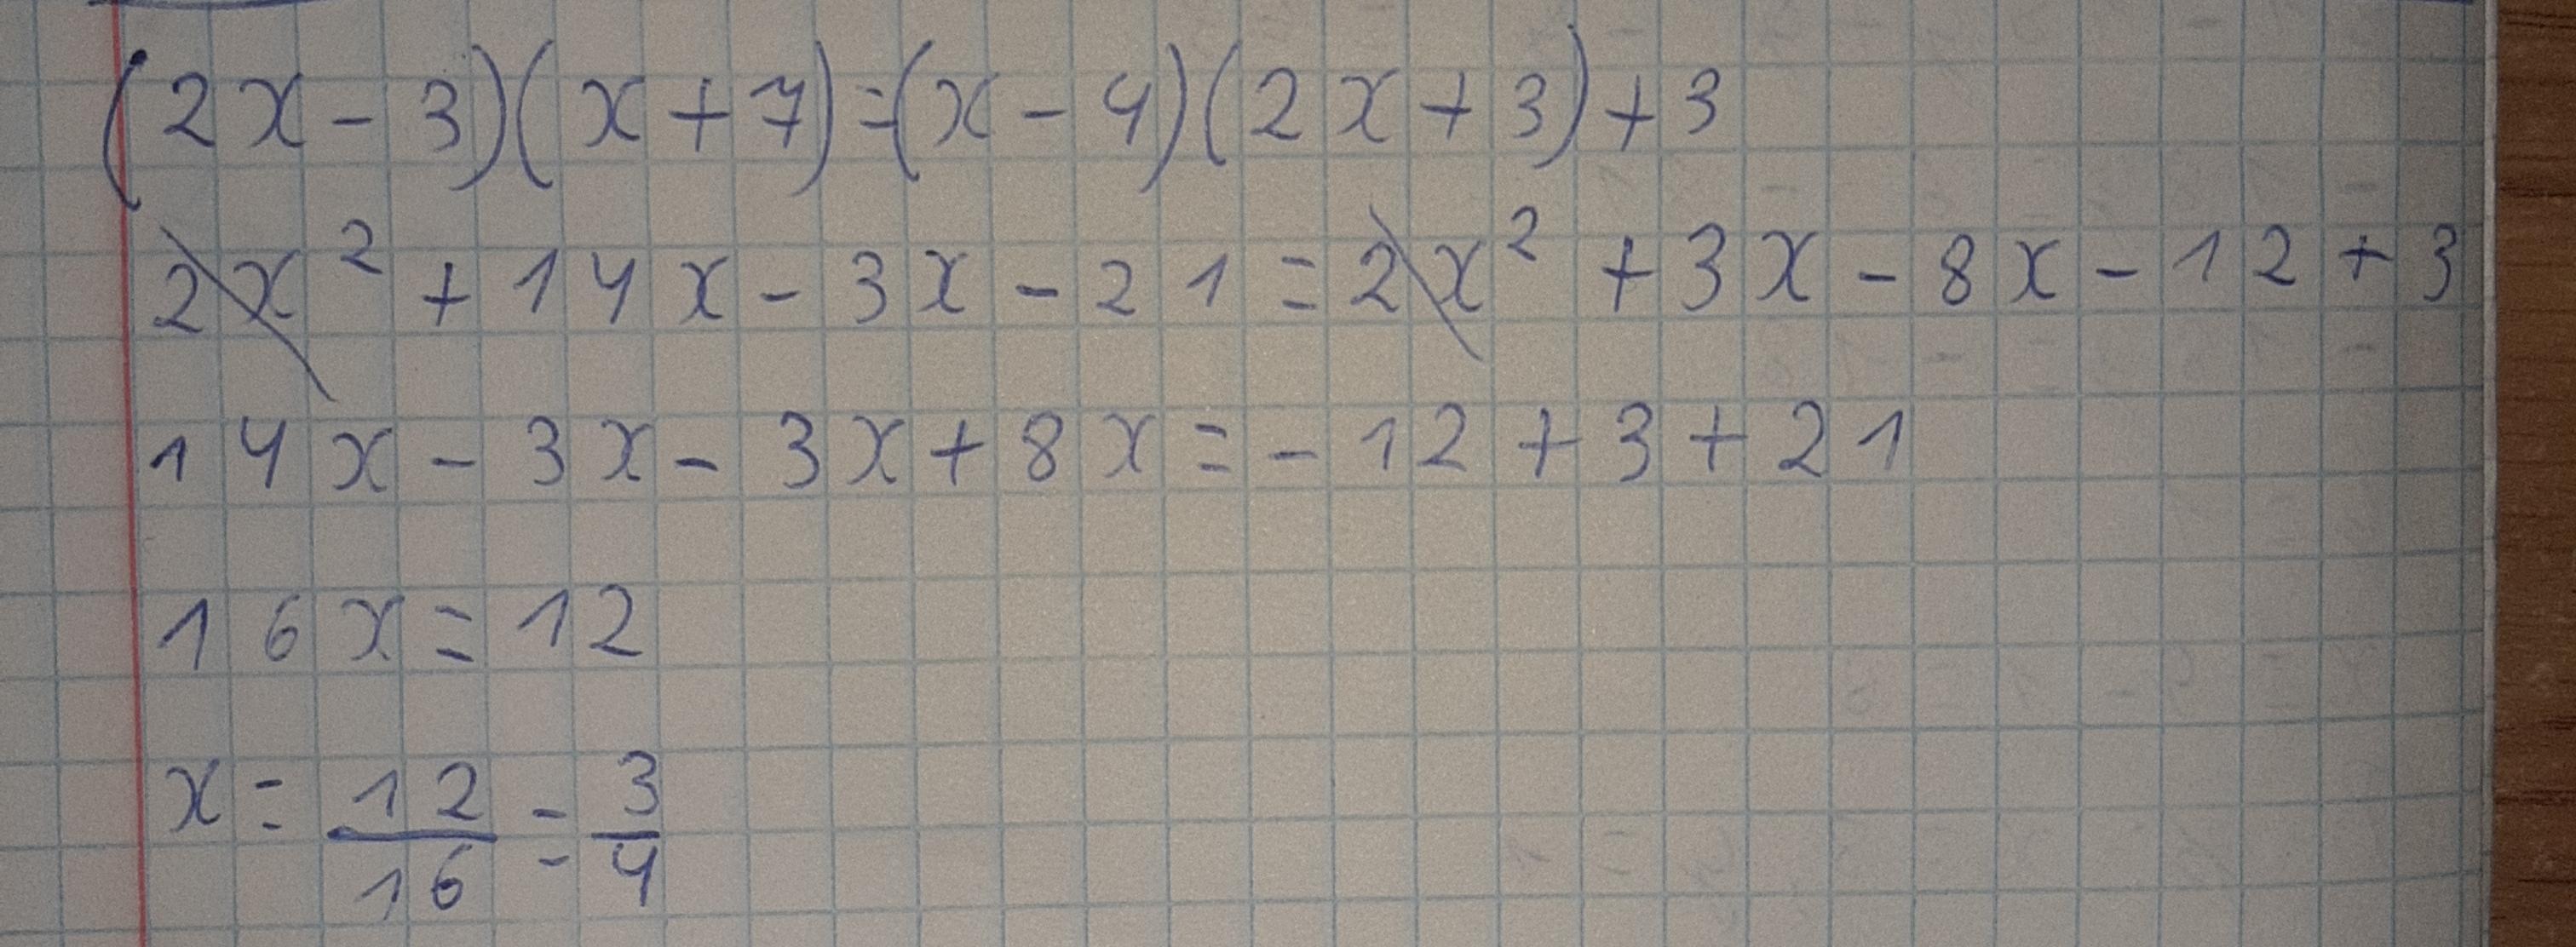 (2x-3)(x+7)=(x-4)(2x+3)+3
2x²+14x-3x-21=2x²+3x-8x-12+3
14x-3x-3x+8x=-12+3+21
16x=12
x=12/16=3/4